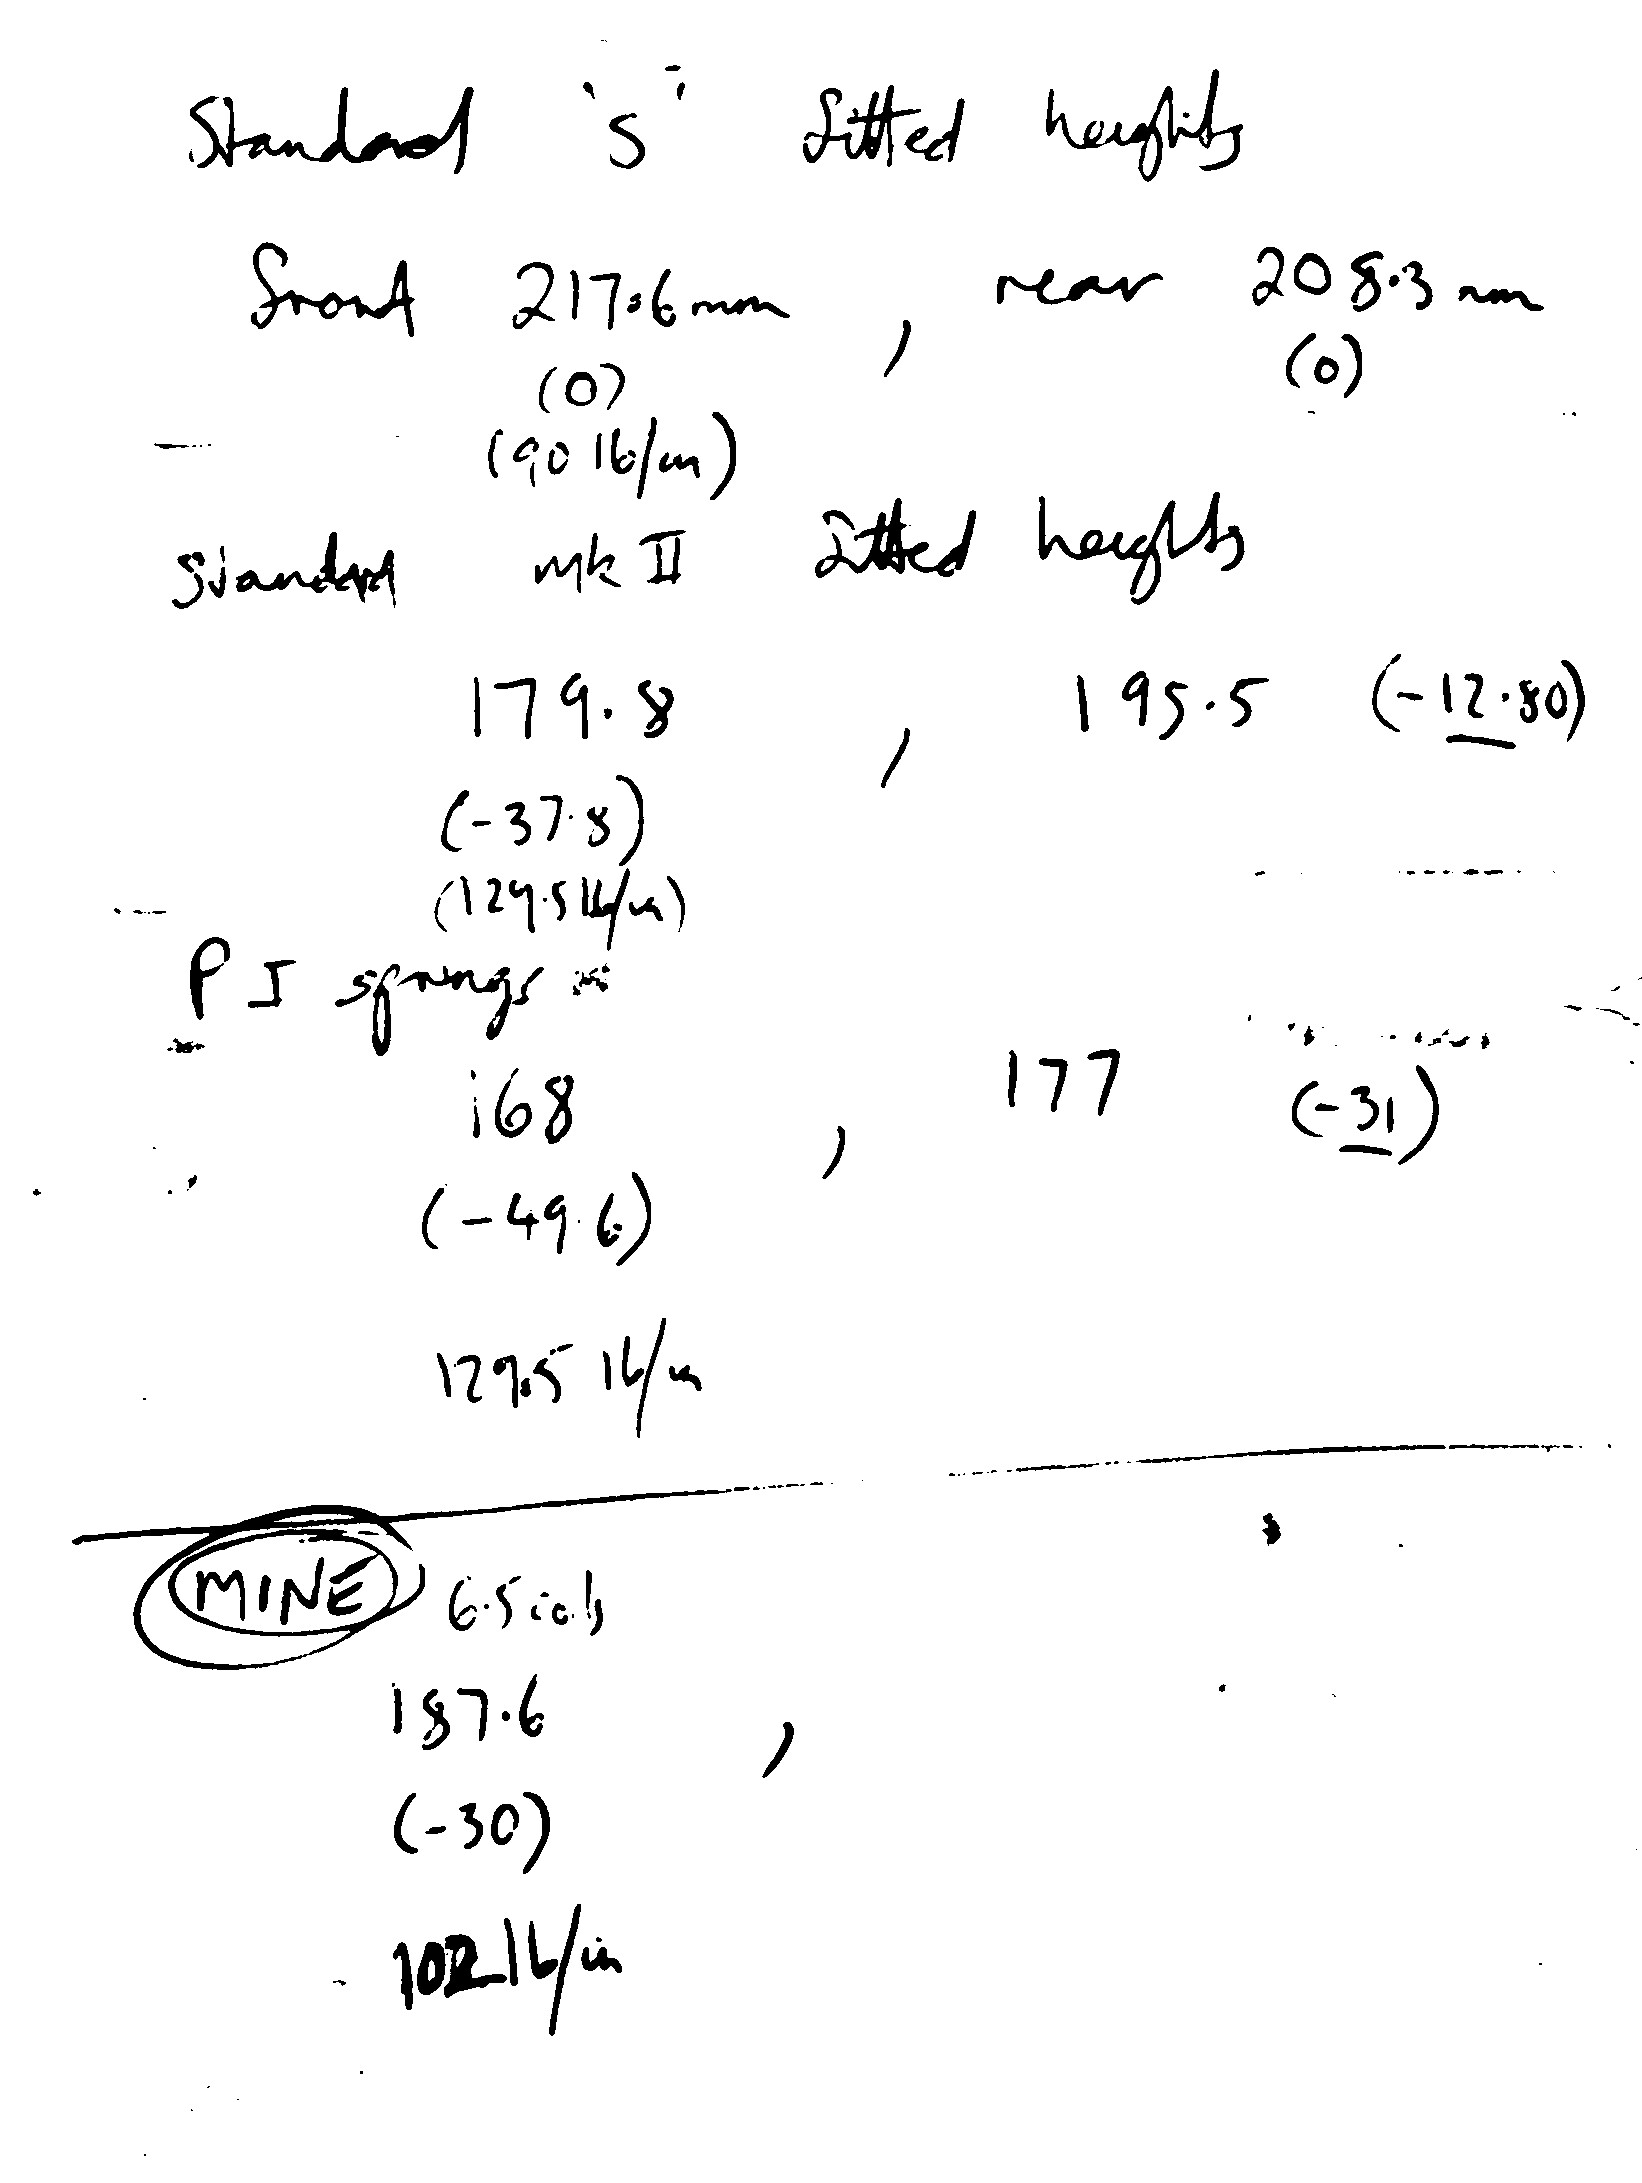 Standard 'S' fitted heights
front 217.6 mm , rear 208.3 mm
(0) (0)
(90 lb/in)
Standard mk II fitted heights
179.8 , 195.5 (-12.80)
(-37.8)
(129.5 lb/in)
P I springs
168 , 177 (-31)
(-49.6)
129.5 lb/in
MINE 6.5
187.6 ,
(-30)
102 lb/in